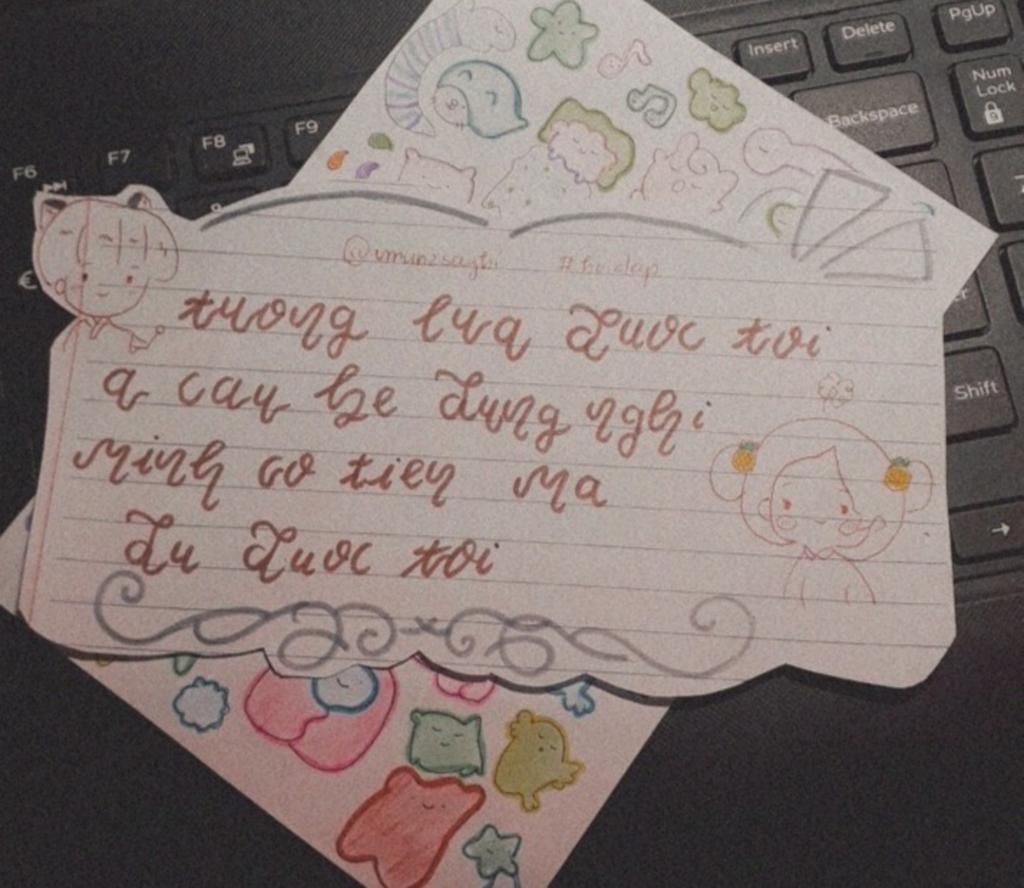 Insert
Delete
PgUp
Num
Lock
Backspace
F6
F7
F8
F9
Shift
tuong lua duoc toi
a cau be dung nghi
minh co tien ma
du duoc toi